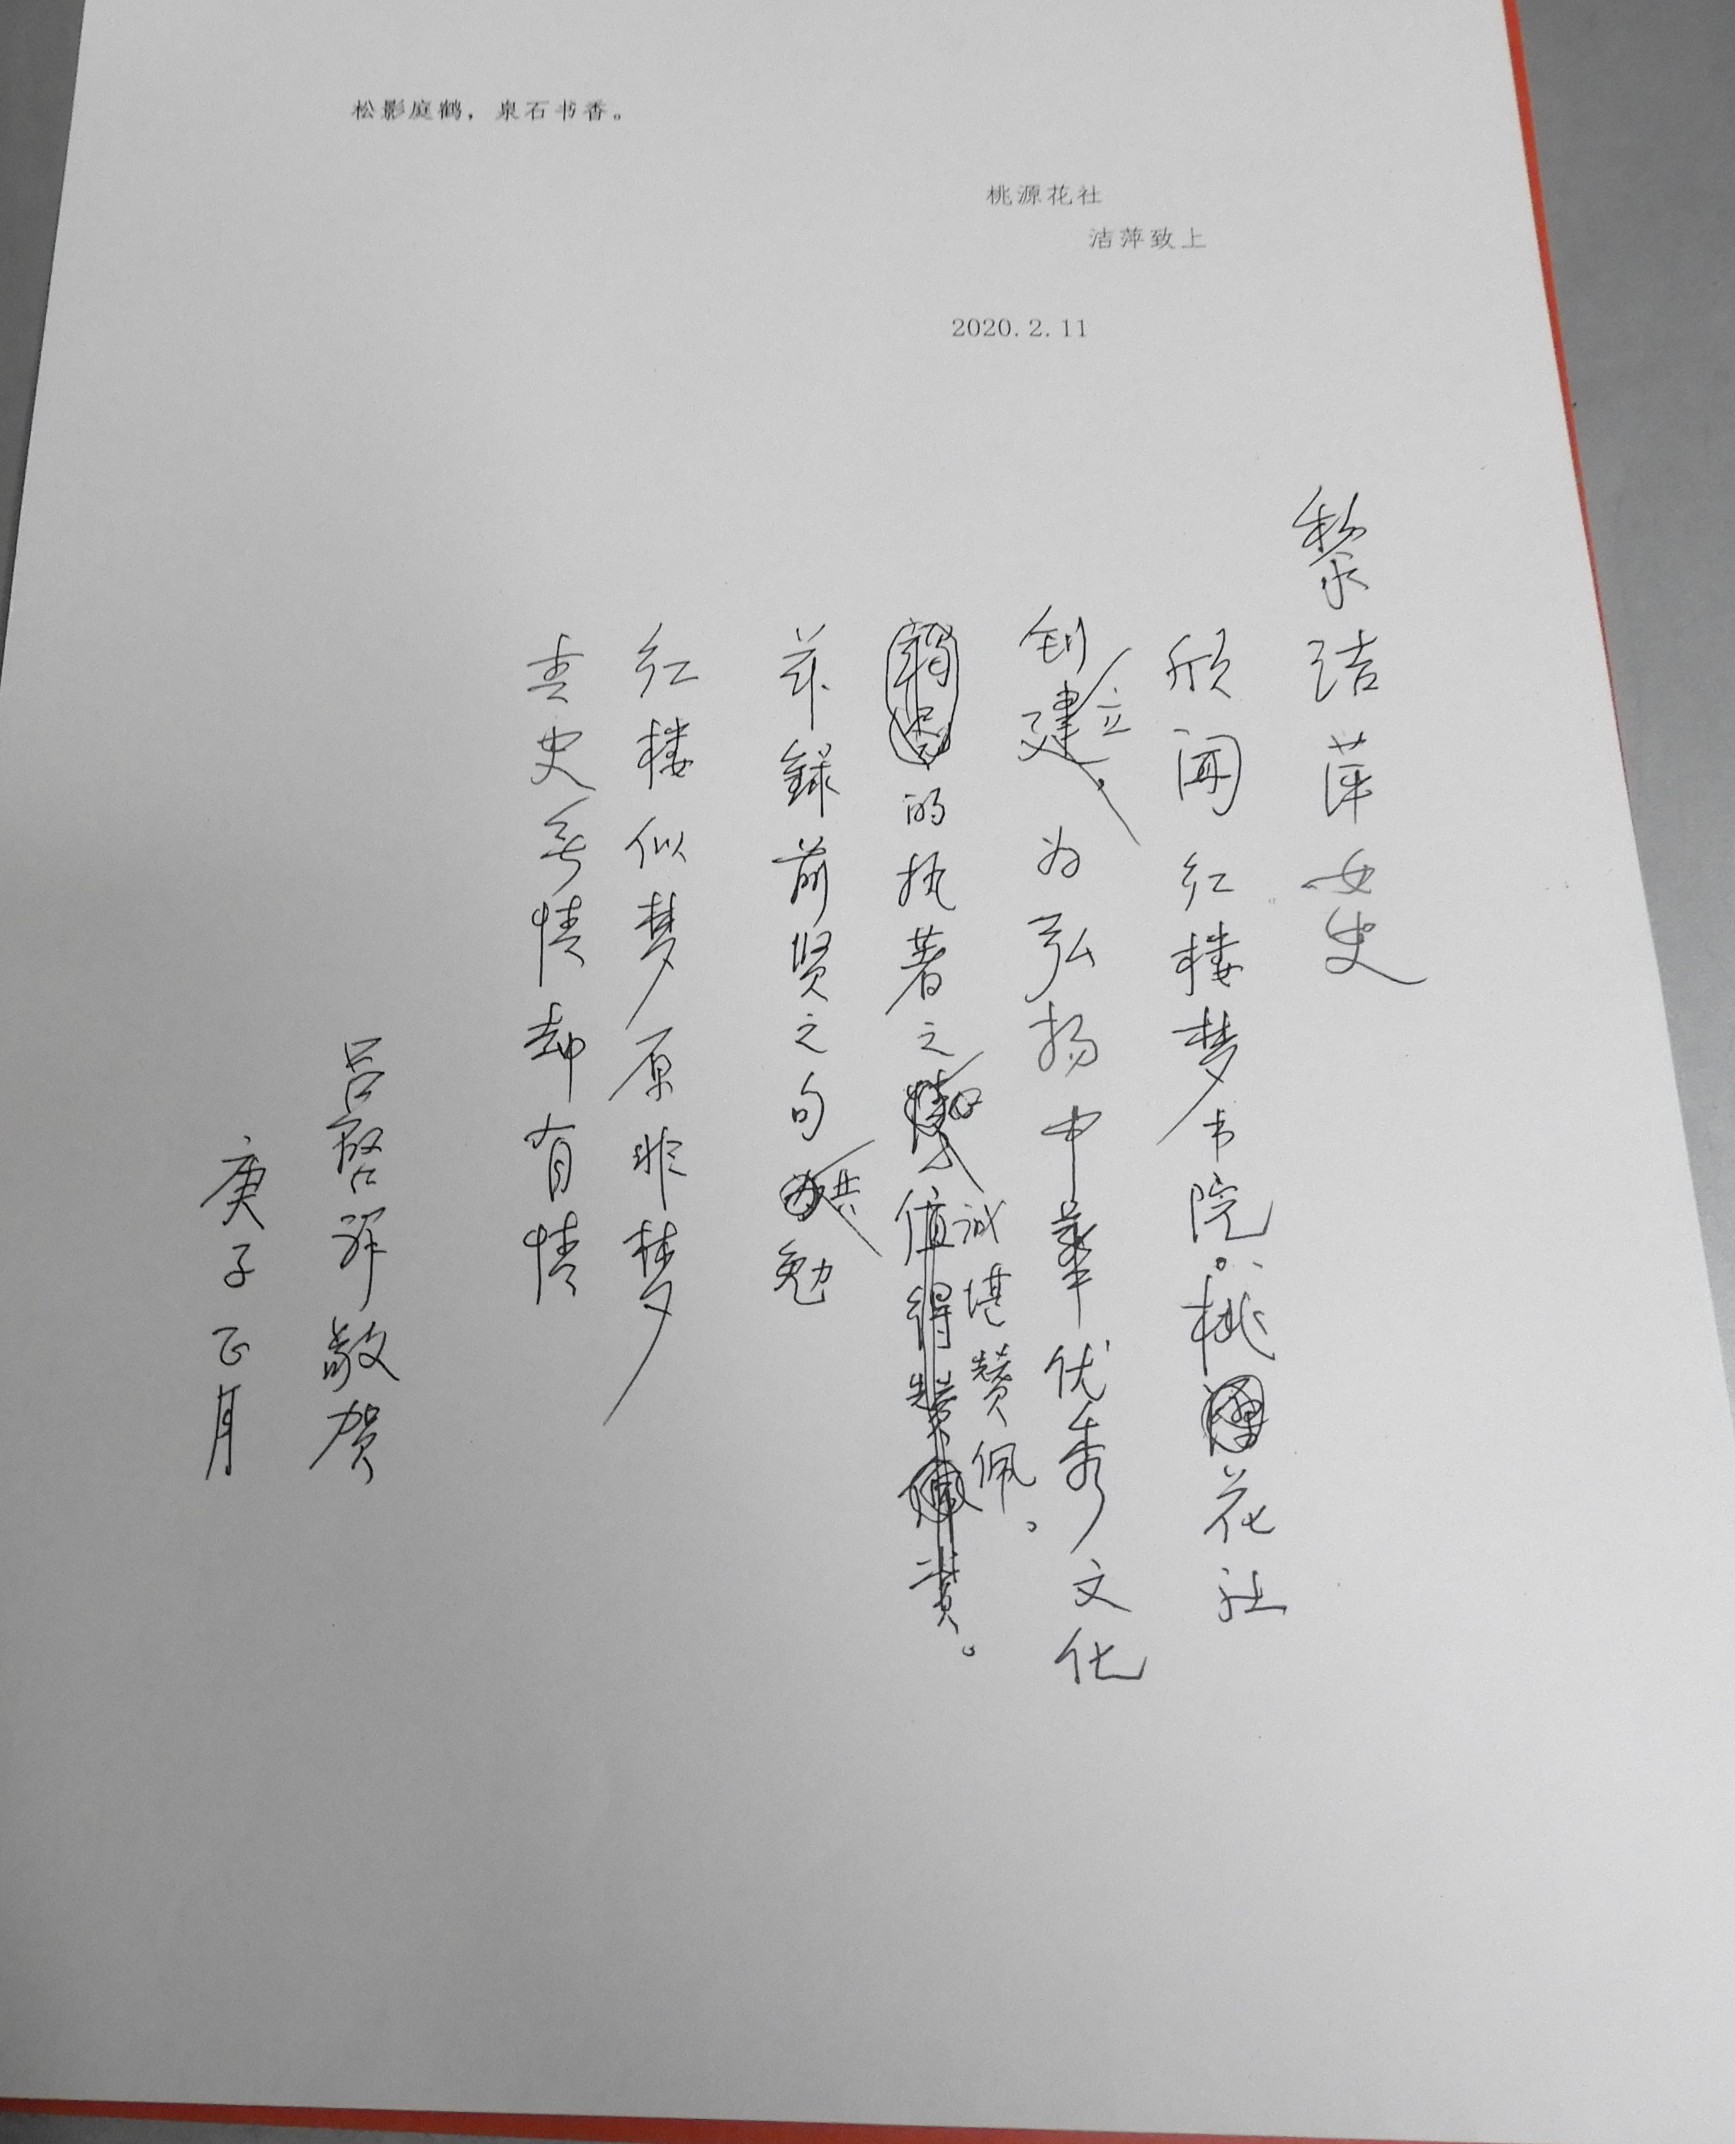 松影庭鹤，泉石书香。
桃源花社
洁萍致上
2020.2.11
黎洁萍女史
欣闻红楼梦书院、桃花社
创立，为弘扬中华优秀文化
的执著之
诚堪赞佩。
值得赞
兹录前贤之句共勉
红楼似梦原非梦
青史无情却有情
吕启祥敬贺
庚子正月